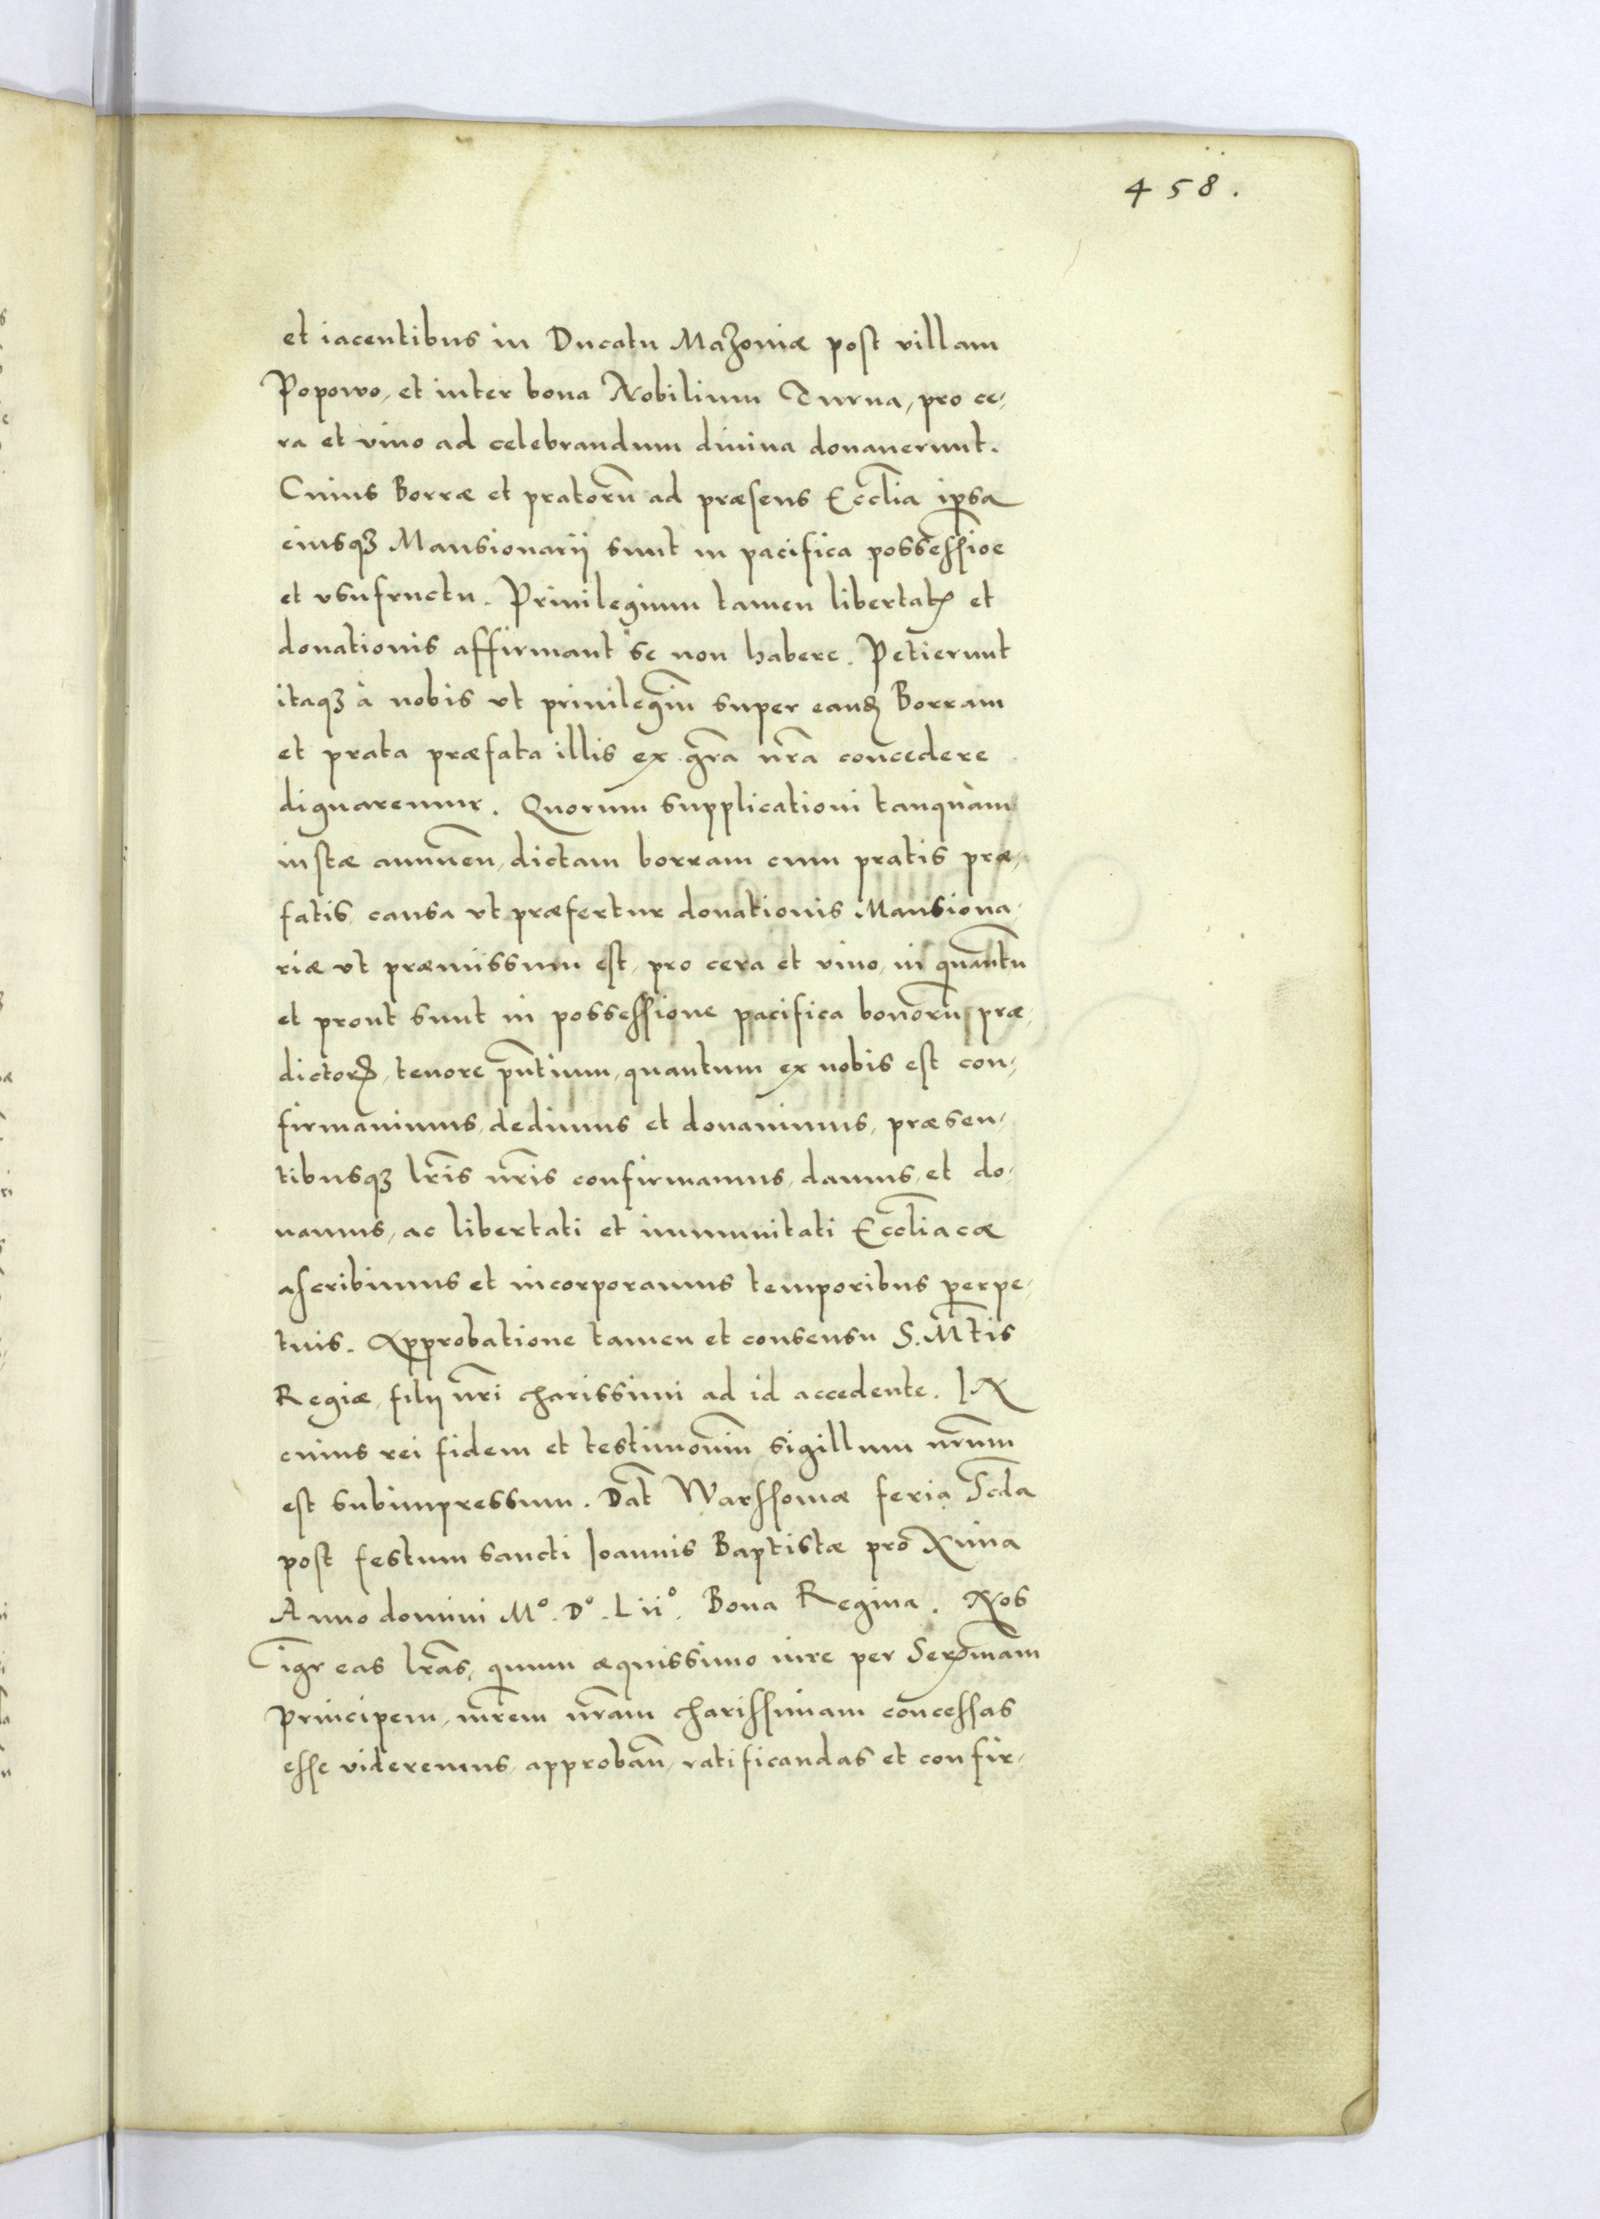 458.
et iacentibus in Ducatu Mazoniæ post villam
Popowo, et inter bona Nobilium Turna, pro ce,
ra et vino ad celebrandum diuina donauerunt.
Cuius Borræ et pratorū ad præsens Eccl̄ia ip̄sa
eiusqȝ Mansionarij sunt in pacifica possessioē
et vsufructu. Priuilegium tamen libertatꝭ et
donationis affirmant se non habere. Petierunt
itaqȝ à nobis vt priuilegiū super eandꝫ Borram
et prata præfata illis ex gr̄a nr̄a concedere
dignaremur. Quorum supplicationi tanquàm
iustæ annuēn, dictam borram cum pratis præ,
fatis, causa vt præfertur donationis Mansiona,
riæ vt præmissum est, pro cera et vino, in quantū
et prout sunt in possessione pacifica bonorū præ,
dictorꝝ, tenore pn̄tium, quantum ex nobis est con,
firmauimus, dedimus et donauimus, præsen,
tibusqȝ lr̄is nr̄is confirmamus, damus, et do,
namus, ac libertati et immunitati Eccl̄iacæ
ascribimus et incorporamus temporibus perpe,
tuis. Approbatione tamen et consensu S. M̄tis
Regiæ, filij nr̄i charissimi ad id accedente. IN
cuius rei fidem et testimoniū sigillum nr̄um
est subimpressum. Dat̄ Warssouiæ feria Sc̄da
post festum sancti Joannis Baptistæ proXima
Anno domini Mº. Dº. Liiº. Bona Regina. Nos
igr̄ eas lr̄as, quum æquissimo iure per Serēmam
Principem, mr̄em nr̄am charissimam concessas
esse videremus, approban̄, ratificandas et confir,